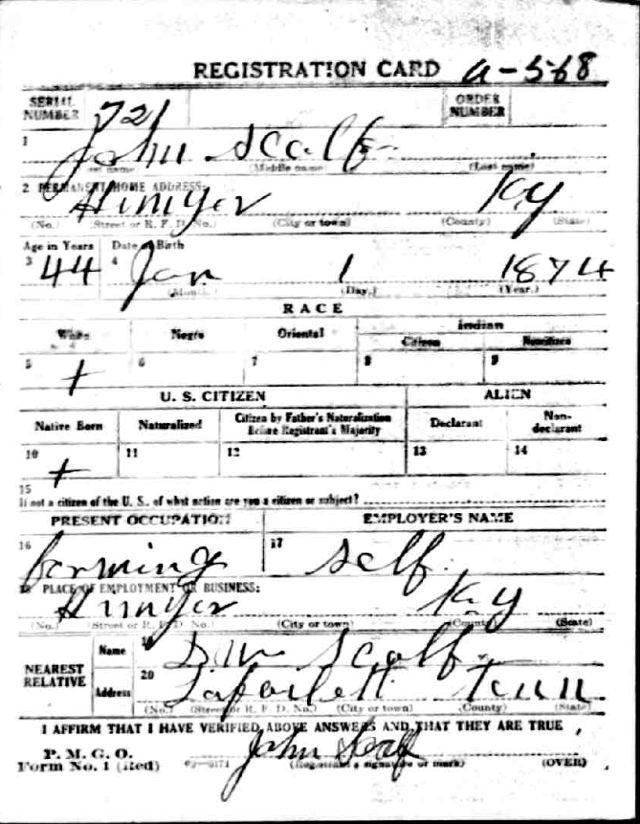 REGISTRATION CARD a-568
SERIAL NUMBER 721 ORDER NUMBER
1 John Scalf
(First name) (Middle name) (Last name)
2 PERMANENT HOME ADDRESS:
Ky
(No.) (Street or R. F. D. No.) (City or town) (County) (State)
Age in Years Date of Birth
3 44 4 Jan 1 1874
(Month.) (Day.) (Year.)
RACE
White Negro Oriental Indian
Citizen Noncitizen
5 + 6 7 8 9
U. S. CITIZEN ALIEN
Native Born Naturalized Citizen by Father's Naturalization Before Registrant's Majority Declarant Non-declarant
10 + 11 12 13 14
15
If not a citizen of the U. S., of what nation are you a citizen or subject?
PRESENT OCCUPATION EMPLOYER'S NAME
16 farming 17 self
18 PLACE OF EMPLOYMENT OR BUSINESS:
Ky
(No.) (Street or R. F. D. No.) (City or town) (County) (State)
NEAREST RELATIVE Name 19 Scalf
Address 20 Tenn
(No.) (Street or R. F. D. No.) (City or town) (County) (State)
I AFFIRM THAT I HAVE VERIFIED ABOVE ANSWERS AND THAT THEY ARE TRUE
P. M. G. O.
Form No. 1 (Red) John Scalf
(Registrant's signature or mark) (OVER)